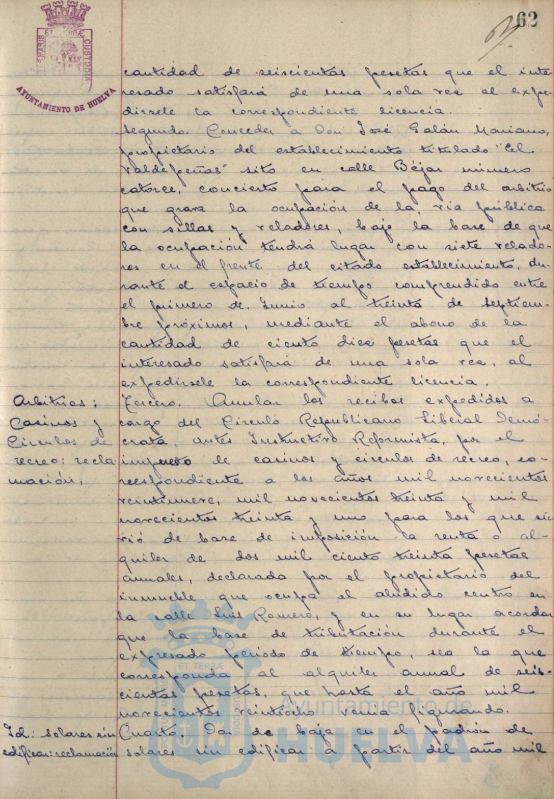 62
AYUNTAMIENTO DE HUELVA
cantidad de seiscientas pesetas que el inte-
resado satisfará de una sola vez al expe-
dírsele la correspondiente licencia.
Segundo. Conceder a Don José Galán Mariano,
propietario del establecimiento titulado "El
Valdepeñas" sito en calle Béjar número
catorce, concierto para el pago del arbitrio
que grava la ocupación de la vía pública
con sillas y veladores, bajo la base de que
la ocupación tendrá lugar con siete velado-
res en el frente del citado establecimiento, du-
rante el espacio de tiempo comprendido entre
el primero de Junio al treinta de Septiem-
bre próximos, mediante el abono de la
cantidad de ciento diez pesetas que el
interesado satisfará de una sola vez, al
expedírsele la correspondiente licencia.
Arbitrios:
Casinos y
Círculos de
recreo: recla-
mación.
Tercero. Anular los recibos expedidos a
cargo del Círculo Republicano Liberal Demó-
crata, antes Instructivo Reformista, por el
impuesto de casinos y círculos de recreo, co-
rrespondiente a los años mil novecientos
veintinueve, mil novecientos treinta y mil
novecientos treinta y uno para los que sir-
vió de base de imposición la renta o al-
quiler de dos mil ciento treinta pesetas
anuales, declarada por el propietario del
inmueble que ocupa el aludido centro en
la calle Luis Romero, y en su lugar acordar
que la base de tributación durante el
expresado periodo de tiempo, sea la que
corresponda al alquiler anual de seis-
cientas pesetas, que hasta el año mil
novecientos veintiocho venía figurando.
Id.: solares sin
edificar: reclamación
Cuarto. Dar de baja en el padrón de
solares sin edificar a partir del año mil
Ayuntamiento de
HUELVA